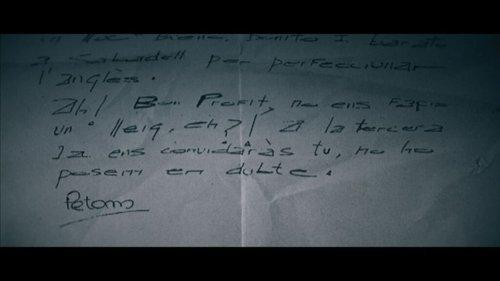 bonito I barato
a Sabadell per perfeccionar
l'anglès.
Ah! Bon Profit, no ens facis
un lleig, eh?! A la tercera
Ja ens convidaràs tu, no ho
posem en dubte.
Petons